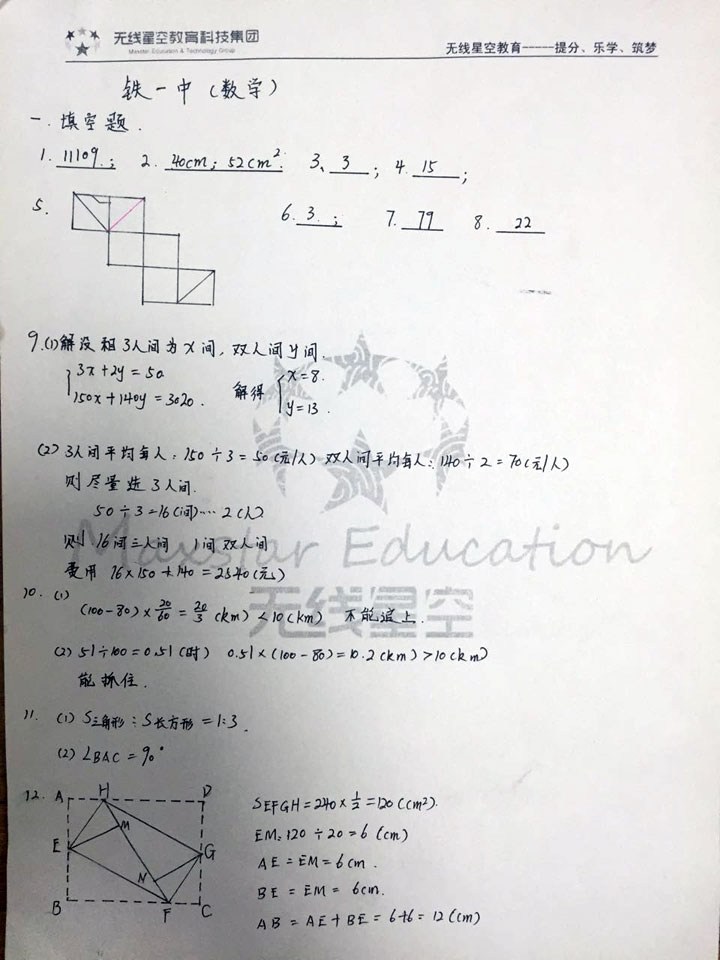 无线星空教育科技集团
Maxstar Education & Technology Group
无线星空教育-----提分、乐学、筑梦
铁一中(数学)
一.填空题.
1. 11109.; 2. 40cm; 52cm². 3、3; 4. 15;
5. 6. 3.; 7. 79 8. 22
9.(1)解设租3人间为x间,双人间y间.
3x+2y=50 解得 x=8.
150x+140y=3020. y=13.
(2) 3人间平均每人:150÷3=50(元/人) 双人间平均每人:140÷2=70(元/人)
则尽量选3人间.
50÷3=16(间)…2(人)
则16间三人间 1间双人间
费用 16×150+140=2540(元)
Maxstar Education
无线星空
10. (1)
(100-80)×20/60=20/3(km)<10(km) 不能追上.
(2) 51÷100=0.51(时) 0.51×(100-80)=10.2(km)>10(km)
能抓住.
11. (1) S三角形:S长方形=1:3.
(2) ∠BAC=90°
12. A H D
M
E G
N
B F C
SEFGH=240×1/2=120(cm²).
EM=120÷20=6(cm)
AE=EM=6cm.
BE=EM=6cm.
AB=AE+BE=6+6=12(cm)